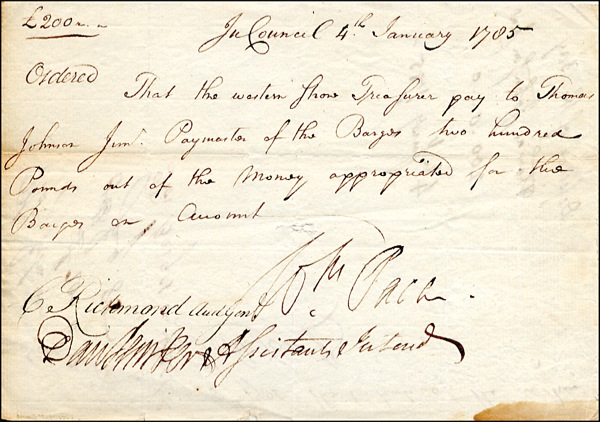 £200
In Council 4th January 1785
Ordered That the western Shore Treasurer pay to Thomas
Johnson Junr. Paymaster of the Barges two hundred
Pounds out of the Money appropriated for the
Barges on Account
Wm Paca
C Richmond Aud Genl
Assistant